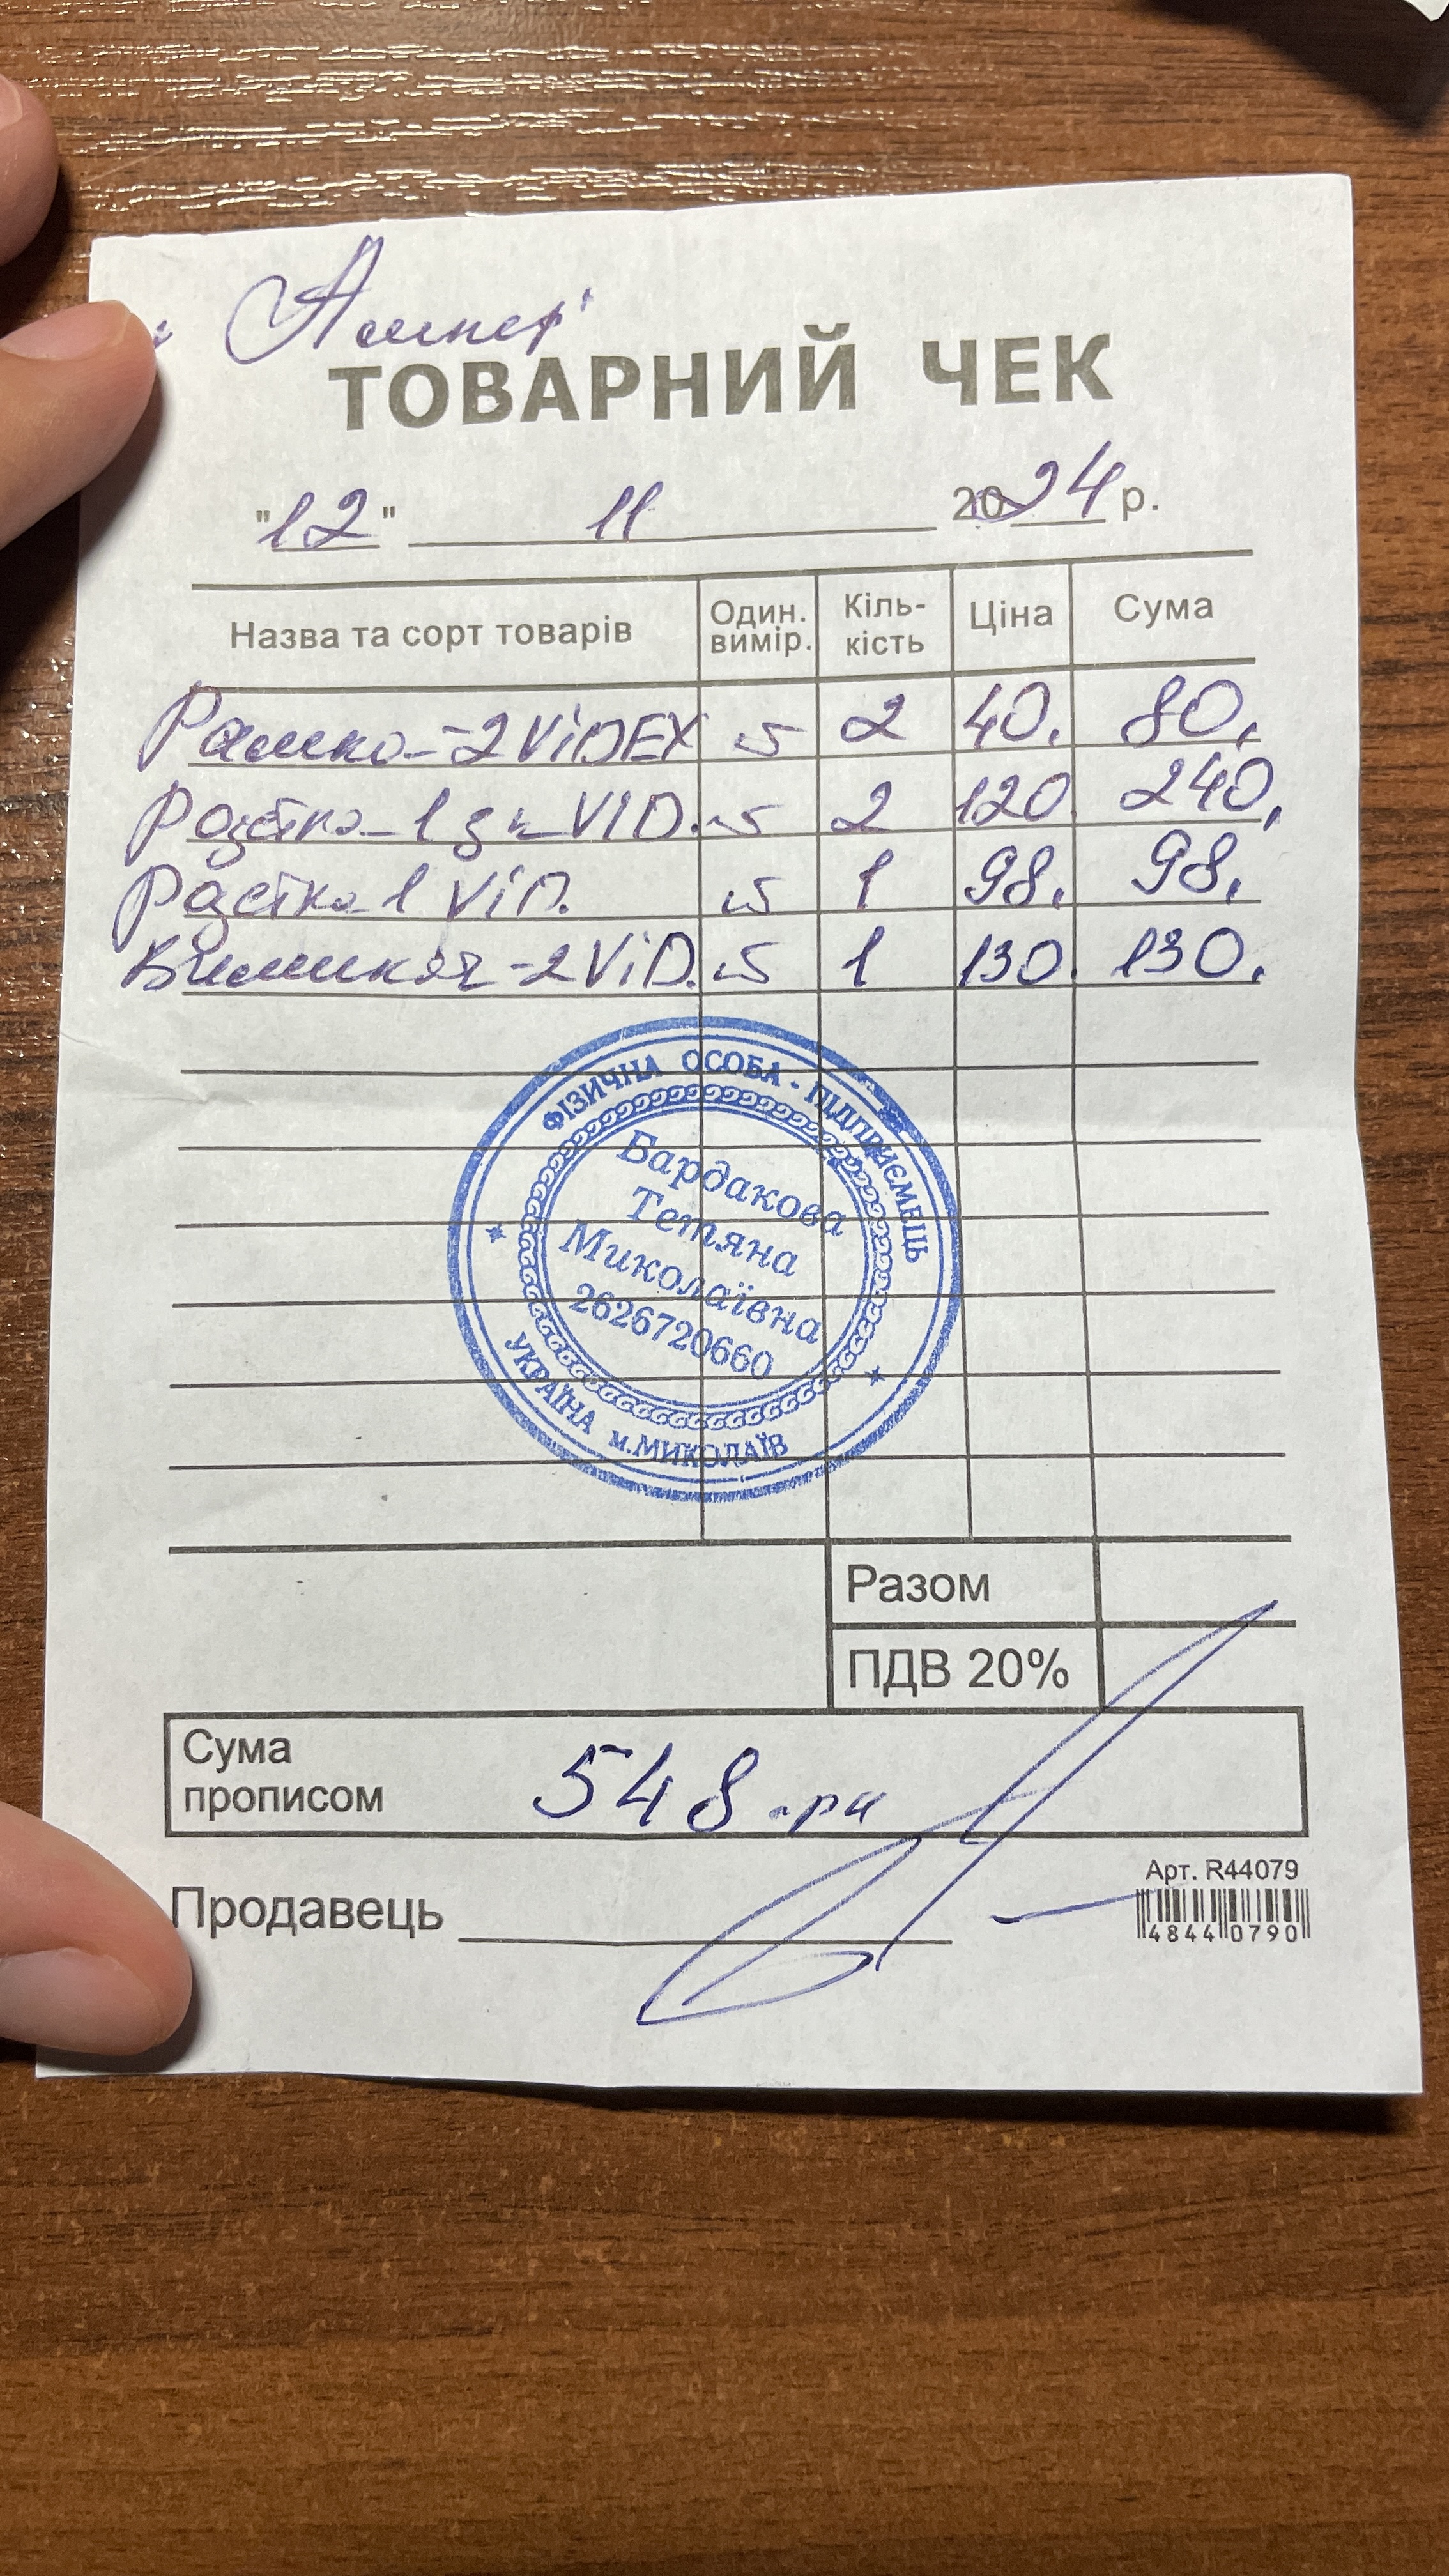 Ампер
ТОВАРНИЙ ЧЕК
"12" 11 2024 р.
Назва та сорт товарів Один. вимір. Кіль-кість Ціна Сума
Рамка-2 ViDEX 2 40, 80,
Розетка-1 з VID. 2 120 240,
Розетка 1 ViD. 1 98, 98,
Вимикач-2 ViD. 1 130, 130,
ФІЗИЧНА ОСОБА - ПІДПРИЄМЕЦЬ
Бардакова
Тетяна
Миколаївна
2626720660
УКРАЇНА м.МИКОЛАЇВ
Разом
ПДВ 20%
Сума
прописом 548 грн
Продавець
Арт. R44079
48440790